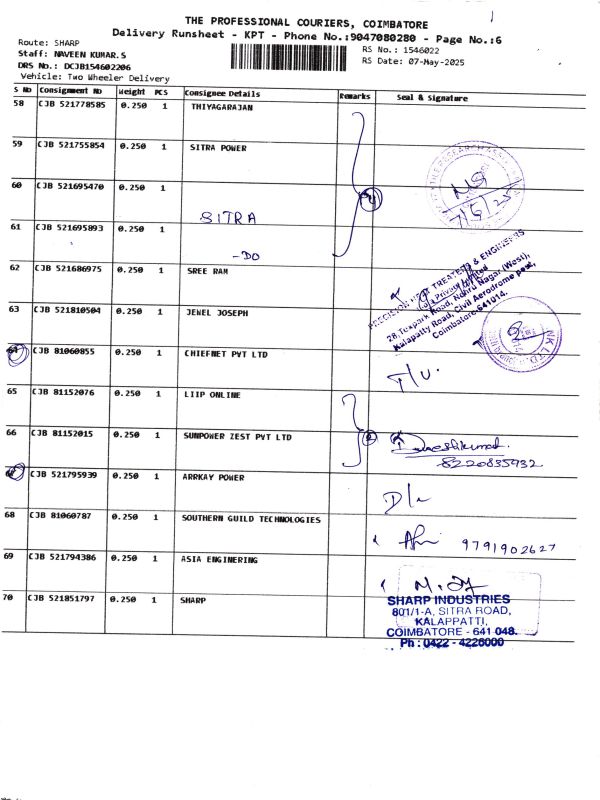 THE PROFESSIONAL COURIERS, COIMBATORE
Delivery Runsheet - KPT - Phone No.:9047080280 - Page No.:6
Route: SHARP
Staff: NAVEEN KUMAR.S
DRS No.: DCJB154602206
Vehicle: Two Wheeler Delivery
RS No.: 1546022
RS Date: 07-May-2025
S No Consignment No Weight PCS Consignee Details Remarks Seal & Signature
58 CJB 521778585 0.250 1 THIYAGARAJAN
59 CJB 521755854 0.250 1 SITRA POWER
60 CJB 521695470 0.250 1 SITRA
61 CJB 521695893 0.250 1 -DO
7/5/25
62 CJB 521686975 0.250 1 SREE RAM
PRECISION HEAT TREATERS & ENGINEERS
Private Limited
28, Texpark Road, Nehru Nagar (West),
Kalapatty Road, Civil Aerodrome post,
Coimbatore-641014.
63 CJB 521810504 0.250 1 JEWEL JOSEPH
64 CJB 81060855 0.250 1 CHIEFNET PVT LTD
65 CJB 81152076 0.250 1 LIIP ONLINE
66 CJB 81152015 0.250 1 SUNPOWER ZEST PVT LTD
8220835932
67 CJB 521795939 0.250 1 ARRKAY POWER
D/L
68 CJB 81060787 0.250 1 SOUTHERN GUILD TECHNOLOGIES
9791902627
69 CJB 521794386 0.250 1 ASIA ENGINERING
70 CJB 521851797 0.250 1 SHARP
SHARP INDUSTRIES
801/1-A, SITRA ROAD,
KALAPPATTI,
COIMBATORE - 641 048.
Ph : 0422 - 4226000